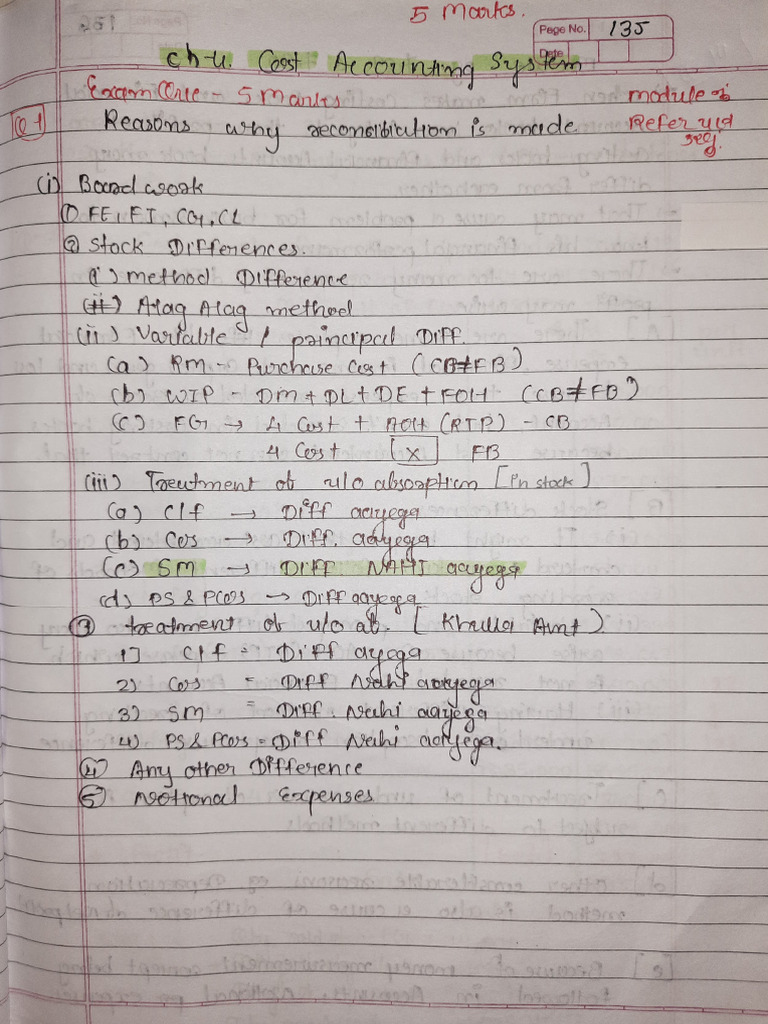 5 Marks.
Page No. 135
Date
ch-4. Cost Accounting System
Exam Que - 5 Marks
module
Q1 Reasons why reconsibliation is made Refer
(i) Board work
① FE, FI, CG, CL
② Stock Differences.
(i) method Difference
(ii) Alag Alag method
(ii) Variable / principal Diff.
(a) RM - Purchase Cost (CB≠FB)
(b) WIP - DM + DL + DE + FOH (CB≠FB)
(c) FG → 4 Cost + AOH (RTP) - CB
4 Cost [X] FB
(iii) Treatment of u/o absorption [In stock]
(a) C/f → Diff aayega
(b) Cos → Diff. aayega
(c) SM → Diff NAHI aayega
(d) PS & PCos → Diff aayega
③ treatment of u/o ab. [Khulla Amt)
1] C/f = Diff ayega
2) Cos = Diff Nahi aayega
3) SM = Diff. Nahi aayega
4) PS & PCos = Diff Nahi aayega.
④ Any other Difference
⑤ Notional Expenses